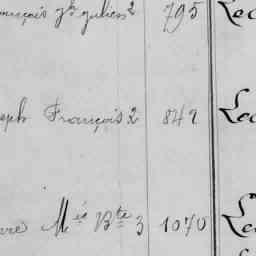 ançois Jh Julien 2 795 Le
seph François 2 842 Le
rre Mie Bte 3 1070 Le